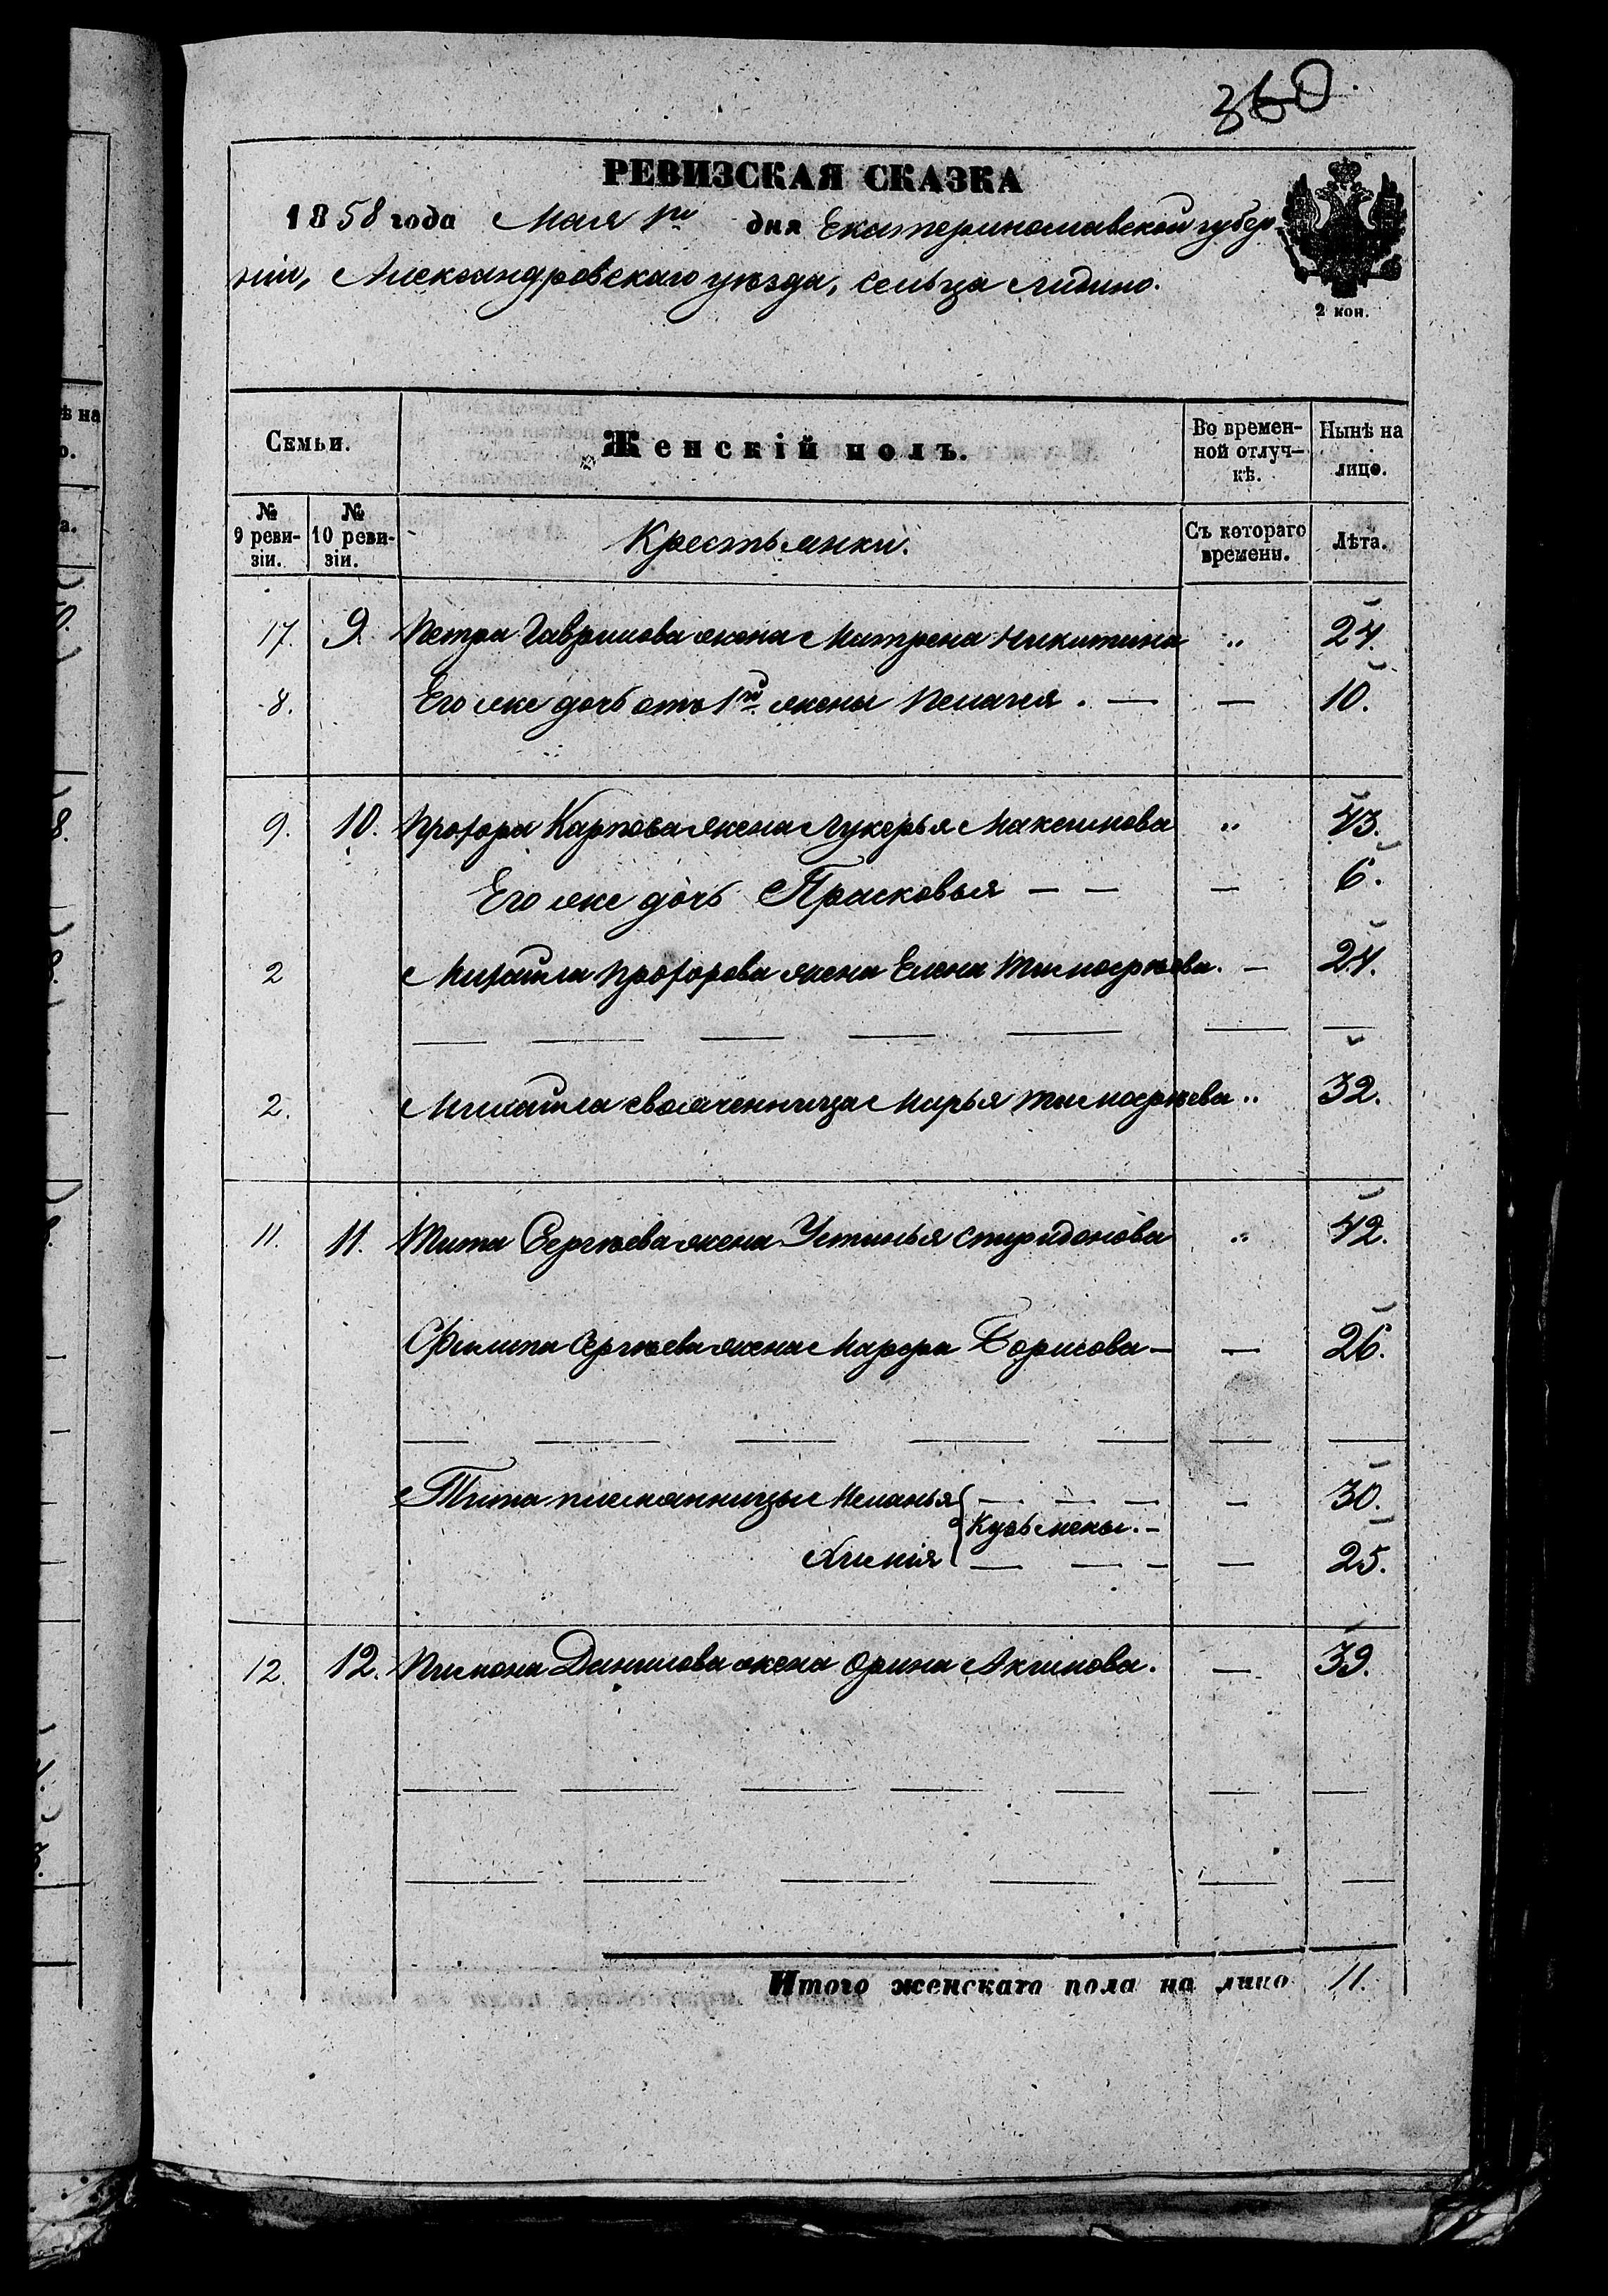 360
РЕВИЗСКАЯ СКАЗКА
1858 года Мая 1го дня Екатеринославской губер-
ніи, Александровскаго уѣзда, сельца Лидино.
2 коп.
Семьи.
Женскій полъ.
Во времен-
ной отлуч-
кѣ.
Нынѣ на
лицо.
№
9 реви-
зіи.
№
10 реви-
зіи.
Крестьянки.
Съ котораго
времени.
Лѣта.
17. 9. Петра Гаврилова жена Матрена Никитина „ 24.
8. Его же дочь отъ 1й жены Пелагея. — — 10.
9. 10. Прохора Карпова жена Лукерья Максимова „ 43.
Его же дочь Прасковья — — — 6.
2 Михайла Прохорова жена Елена Тимофѣева. — 24.
2. Михайла свояченница Марья Тимофѣева „ 32.
11. 11. Тита Сергѣева жена Устинья Спиридонова „ 42.
Филипа Сергѣева жена Марфа Борисова — — 26.
Тита племянницы Меланья — — — — 30.
Кузьмены. —
Ксенія — — — — 25.
12. 12. Пимона Данилова жена Орина Акимова. — 39.
Итого женскаго пола на лицо 11.